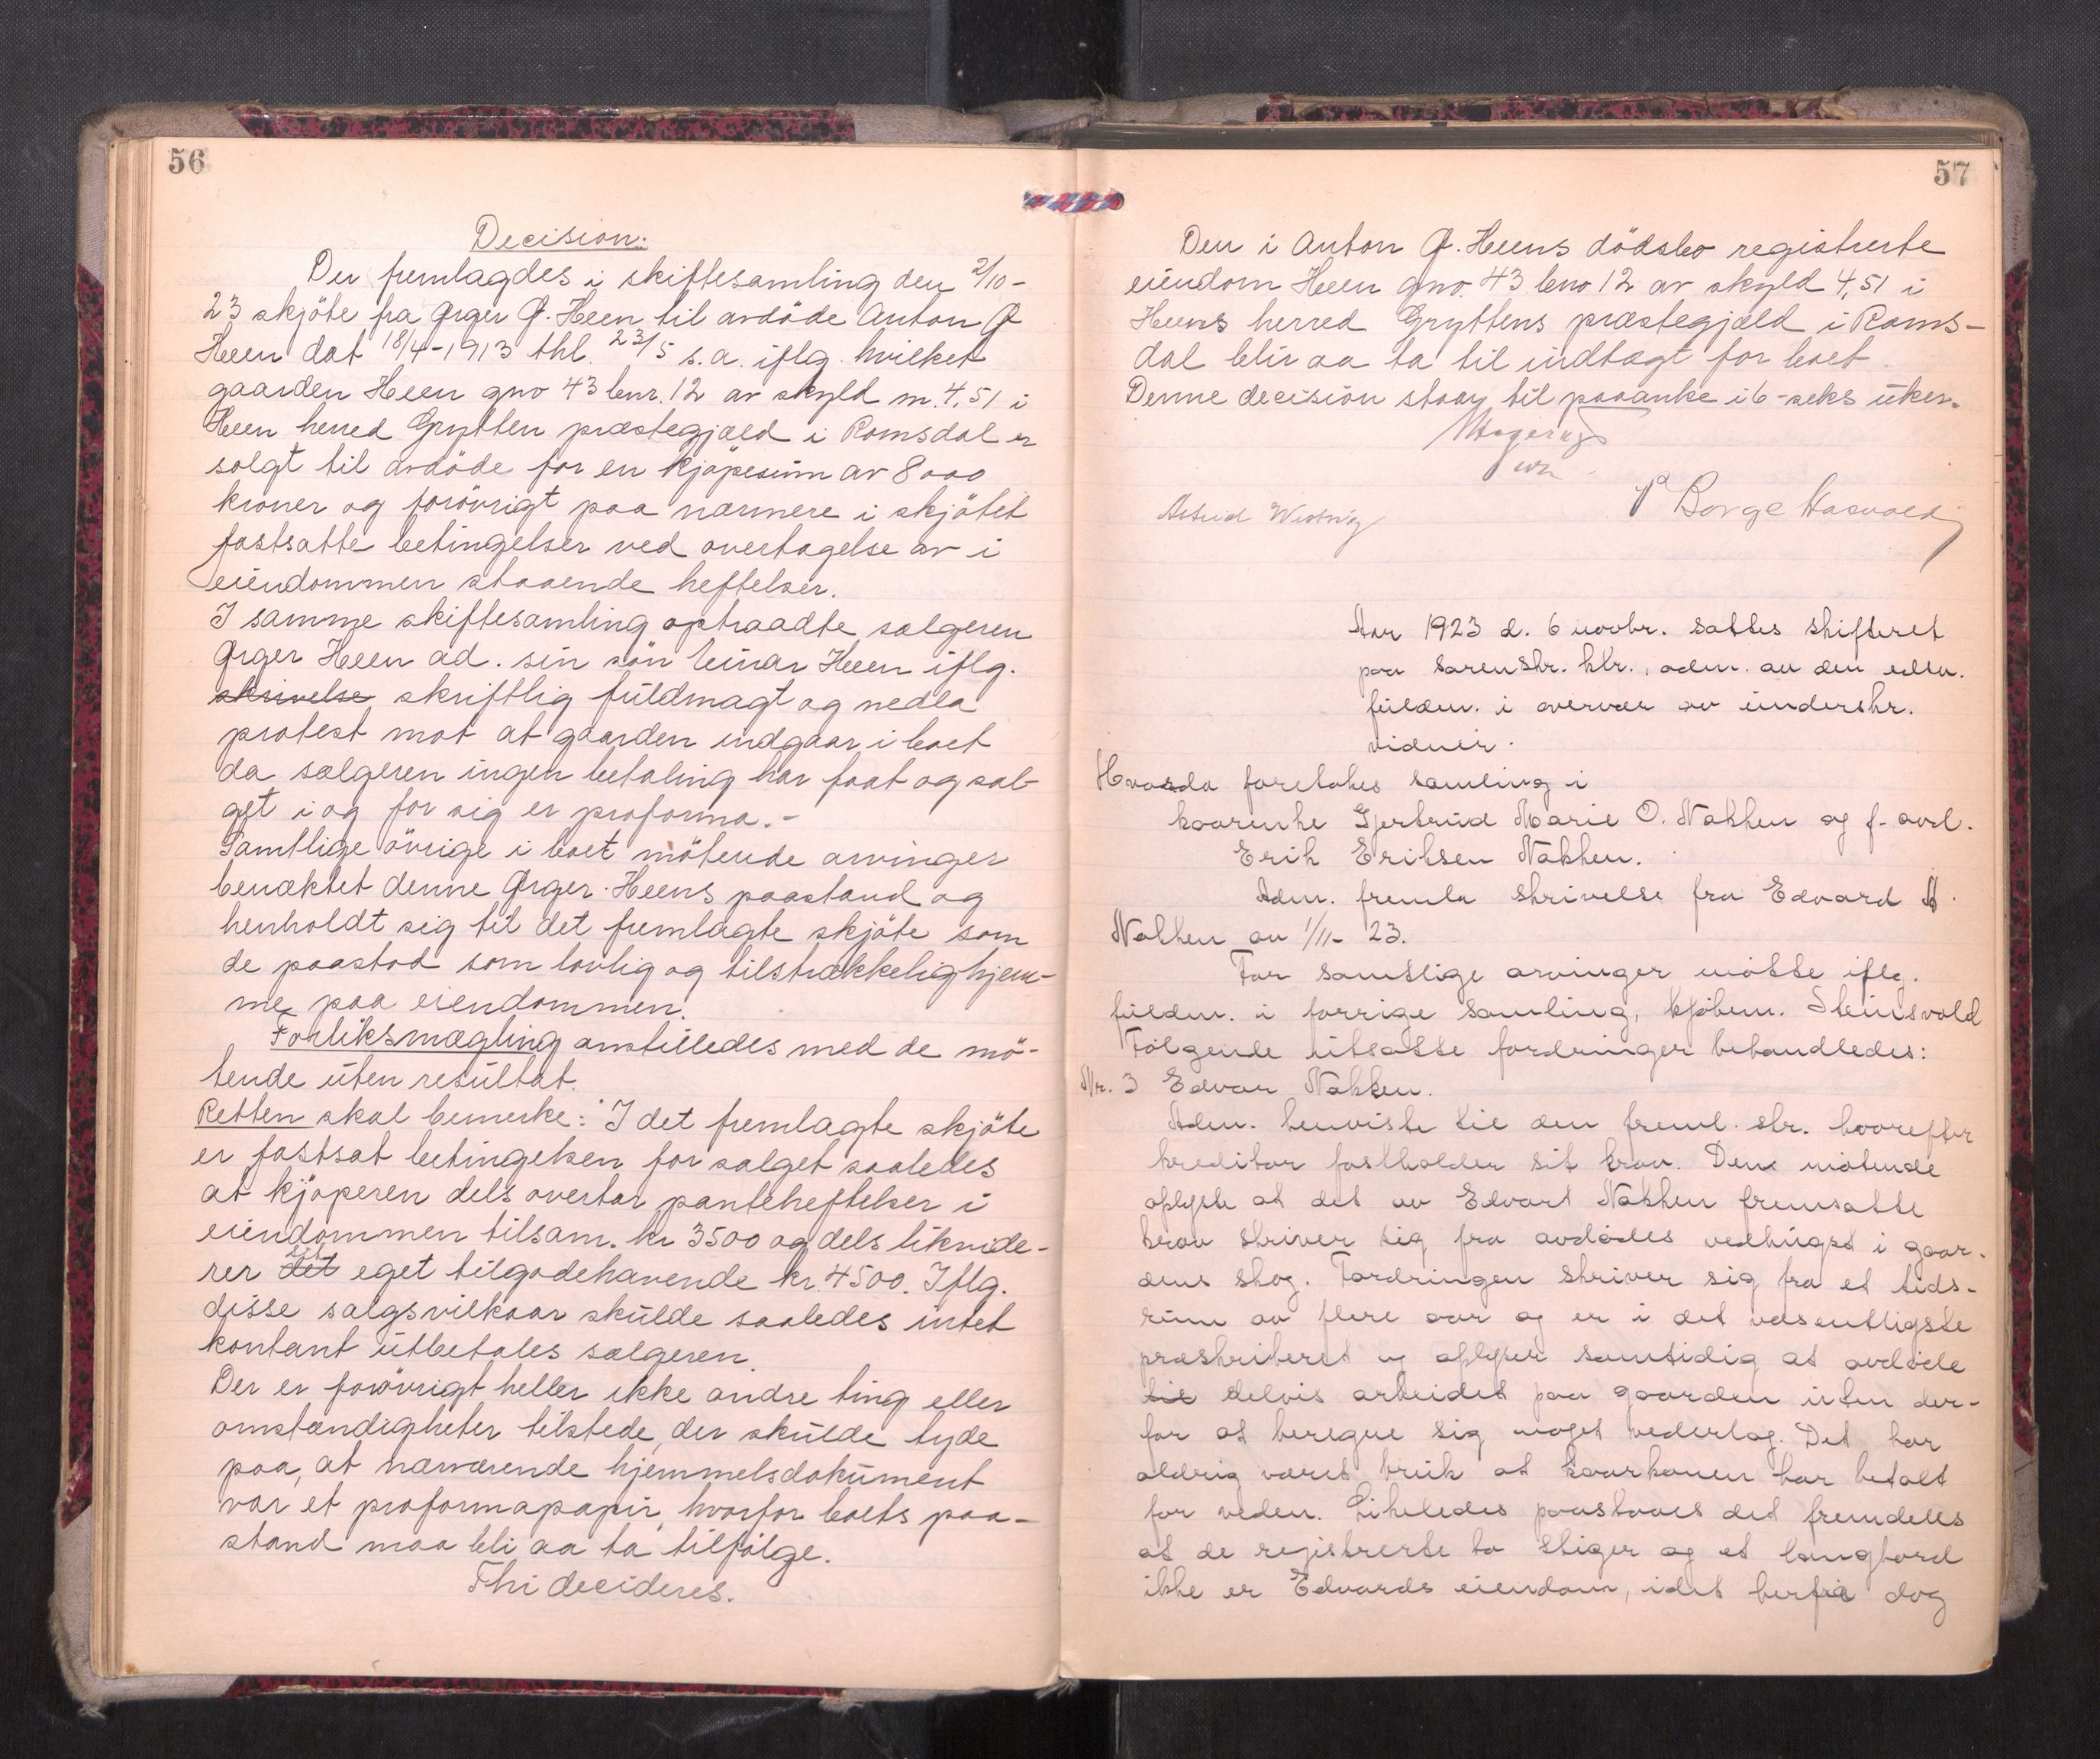 56
Decision:
Der fremlagdes i skiftesamling den 2/10-
23 skjöte fra Ørger Ø. Heen til avdöde Anton Ø
Heen dat 18/4-1913 thl. 23/5 s.a. iflg. hvilket
gaarden Heen gno 43 bnr. 12 av skyld m. 4,51 i
Heen herred Grytten præstegjæld i Romsdal er
solgt til avdöde for en kjöpesum av 8000
kroner og forövrigt paa nærmere i skjötet
fastsatte betingelser ved overtagelse av i
eiendommen staaende heftelser.
I samme skiftesamling optraadte sælgeren
Ørger Heen ad. sin sön Einar Heen iflg.
skrivelse skriftlig fuldmagt og nedla
protest mot at gaarden indgaar i boet
da sælgeren ingen betaling har faat og sal-
get i og for sig er proforma.-
Samtlige övrige i boet mötende arvinger
benæktet denne Ørger Heens paastand og
henholdt sig til det fremlagte skjöte som
de paastod som lovlig og tilstrækkelig hjem-
me paa eiendommen.
Forliksmægling anstilledes med de mö-
tende uten resultat.
Retten skal bemerke: I det fremlagte skjöte
er fastsat betingelsen for salget saaledes
at kjöperen dels overtar panteheftelser i
eiendommen tilsam. kr 3500 og dels likvide-
rer det sit eget tilgodehavende kr. 4500. Iflg.
disse salgsvilkaar skulde saaledes intet
kontant utbetales sælgeren.
Der er forövrigt heller ikke andre ting eller
omstændigheter tilstede, der skulde tyde
paa, at nærværende hjemmelsdokument
var et proformapapir, hvorfor boets paa-
stand maa bli aa ta tilfölge.
Thi decideres.
57
Den i Anton Ø. Heens dödsbo registrerte
eiendom Heen gno. 43 bno 12 av skyld 4,51 i
Heens herred Gryttens præstegjæld i Roms-
dal blir aa ta til indtægt for boet.
Denne decision staar til paaanke i 6-seks uker.
Astrid
P Borge
Aar 1923 d. 6 novbr. sattes skifteret
paa sorenskr. ktr., adm. av den edsv.
fuldm. i overvær av underskr.
vidner.
Hvorda foretokes samling i
kaarenke Gjertrud Marie O. Nakken og f. avd.
Erik Eriksen Nakken.
Adm. fremla skrivelse fra Edvard A.
Nakken av 1/11- 23.
For samtlige arvinger mötte iflg.
fuldm. i forrige samling, kjöbm. Steinsvold
Fölgende utsatte fordringer behandledes:
Nr. 3 Edvar Nakken.
Adm. henviste til den freml. skr. hvorefter
kreditor fastholder sit krav. Den mötende
oplyste at det av Edvart Nakken fremsatte
krav skriver sig fra avdödes vedhugst i gaar-
dens skog. Fordringen skriver sig fra et tids-
rum av flere aar og er i det væsentligste
præskriberet og oplyser samtidig at avdöde
til delvis arbeidet paa gaarden uten der-
for at beregne sig noget vederlag. Det har
aldrig været bruk at kaarkonen har betalt
for veden. Likeledes paastaaes det fremdeles
at de registrerte to stiger og et langbord
ikke er Edvards eiendom, idet dog